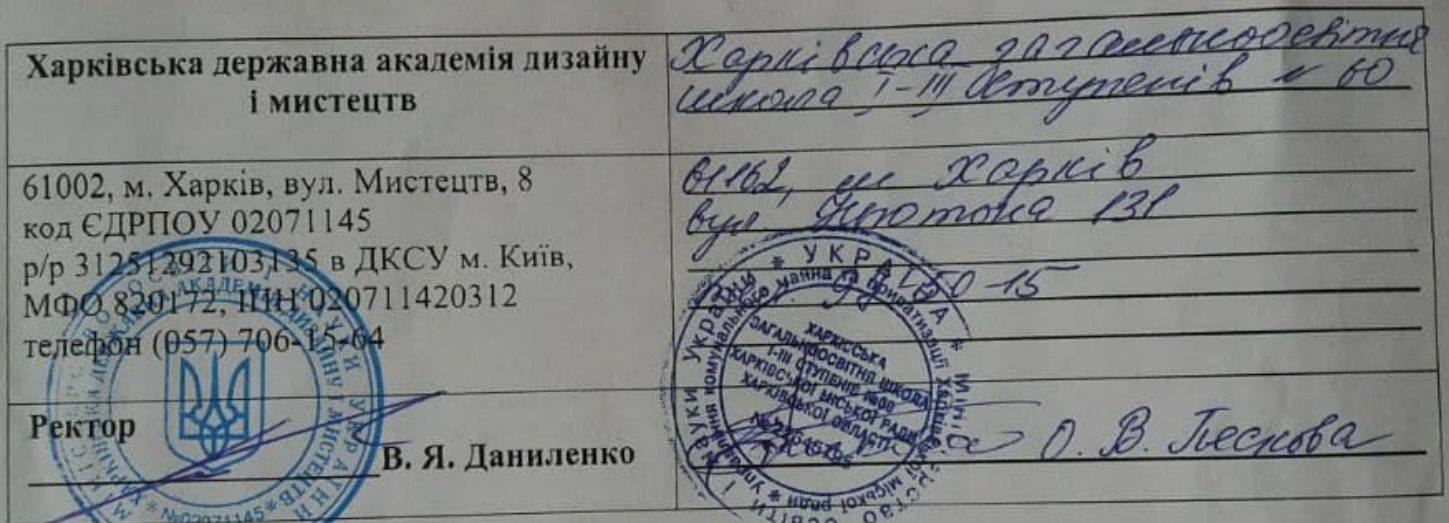 Харківська державна академія дизайну
і мистецтв
Харківська загальноосвітня
школа І-ІІІ ступенів № 60
61002, м. Харків, вул. Мистецтв, 8
код ЄДРПОУ 02071145
р/р 31251292103135 в ДКСУ м. Київ,
МФО 820172, ІПН 020711420312
телефон (057) 706-15-64
61162, м Харків
вул
131
50-15
УКРАЇНА
ХАРКІВСЬКА
ЗАГАЛЬНООСВІТНЯ ШКОЛА
І-ІІІ СТУПЕНІВ
ХАРКІВСЬКОЇ МІСЬКОЇ РАДИ
ХАРКІВСЬКОЇ ОБЛАСТІ
Ректор
В. Я. Даниленко
О. В. Пескова
№02071145